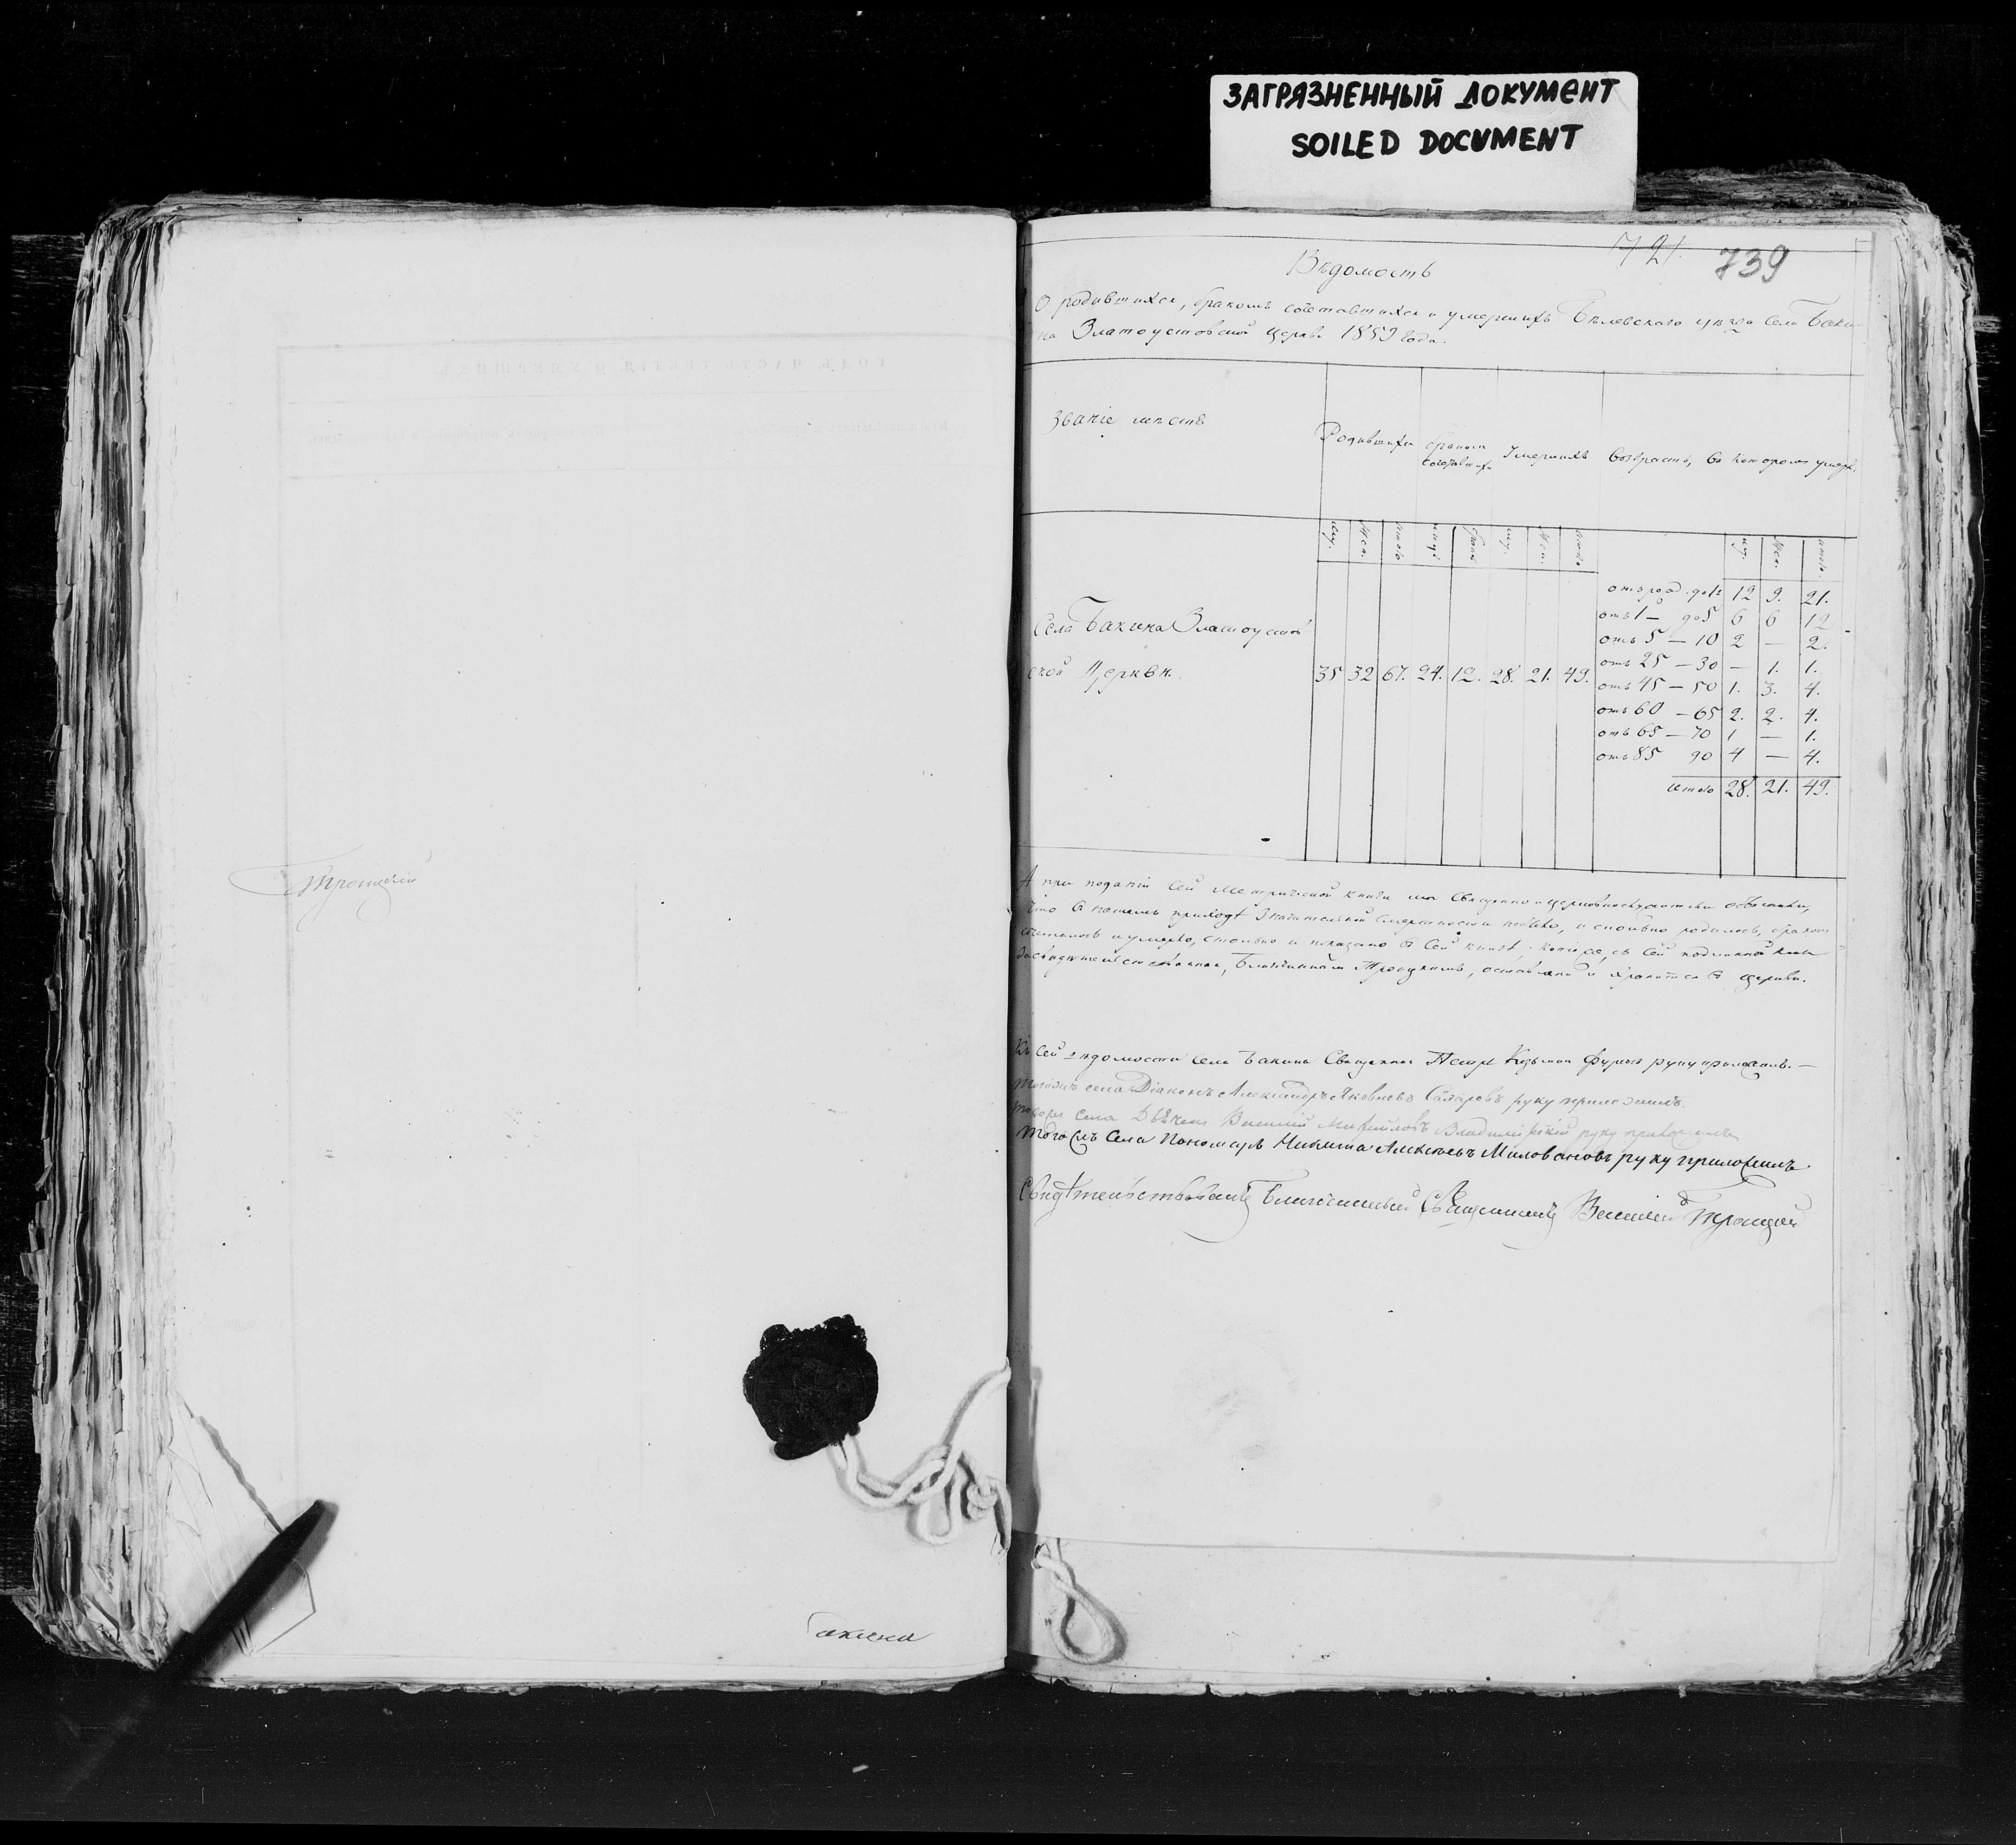 ЗАГРЯЗНЕННЫЙ ДОКУМЕНТ
SOILED DOCUMENT
Троицкій
Бакина
721. 739
Вѣдомость
О родившихся, бракомъ сочетавшихся и умершихъ Бѣлевскаго уѣзда села Баки-
на Златоустовской церкви 1859 года.
Званіе мѣстъ
Родившихся
бракомъ сочетавшихся
Умершихъ
Возрастъ, въ которомъ умерли
муж. жен. итого лицъ браковъ муж. жен. итого муж. жен. итого.
Села Бакина Златоустов
ской Церкви. 35 32 67. 24. 12. 28. 21. 49.
отъ рожд. до 1 12 9. 21.
отъ 1 — до 5 6 6 12
отъ 5 — 10 2 — 2.
отъ 25 — 30 — 1. 1.
отъ 45 — 50 1. 3. 4.
отъ 60 — 65 2. 2. 4.
отъ 65 — 70 1 — 1.
отъ 85 90 4 — 4.
итого 28. 21. 49.
А при поданіи сей Метрической книги мы Священно и церковнослужители объясняемъ,
что въ нашемъ приходѣ значительной смертности не было, и сколько родилось, бракомъ
сочеталось и умерло, столько и показано въ сей книгѣ. Копія же съ сей подлинной книги
засвидѣтельствованная, Благочиннымъ Троицкимъ, оставлена и хранится въ церкви.
Къ сей вѣдомости села Бакина Священникъ Петръ Козьминъ руку приложилъ. —
Тогожъ села Діаконъ Александръ Яковлевъ Сахаровъ руку приложилъ.
Тогожъ села Дьячекъ Василій Михайловъ Владимірскій руку приложилъ
Тогожъ села Пономарь Никита Алексѣевъ Миловановъ руку приложилъ.
Свидѣтельствовалъ Благочинный Священникъ Василій Троицкій